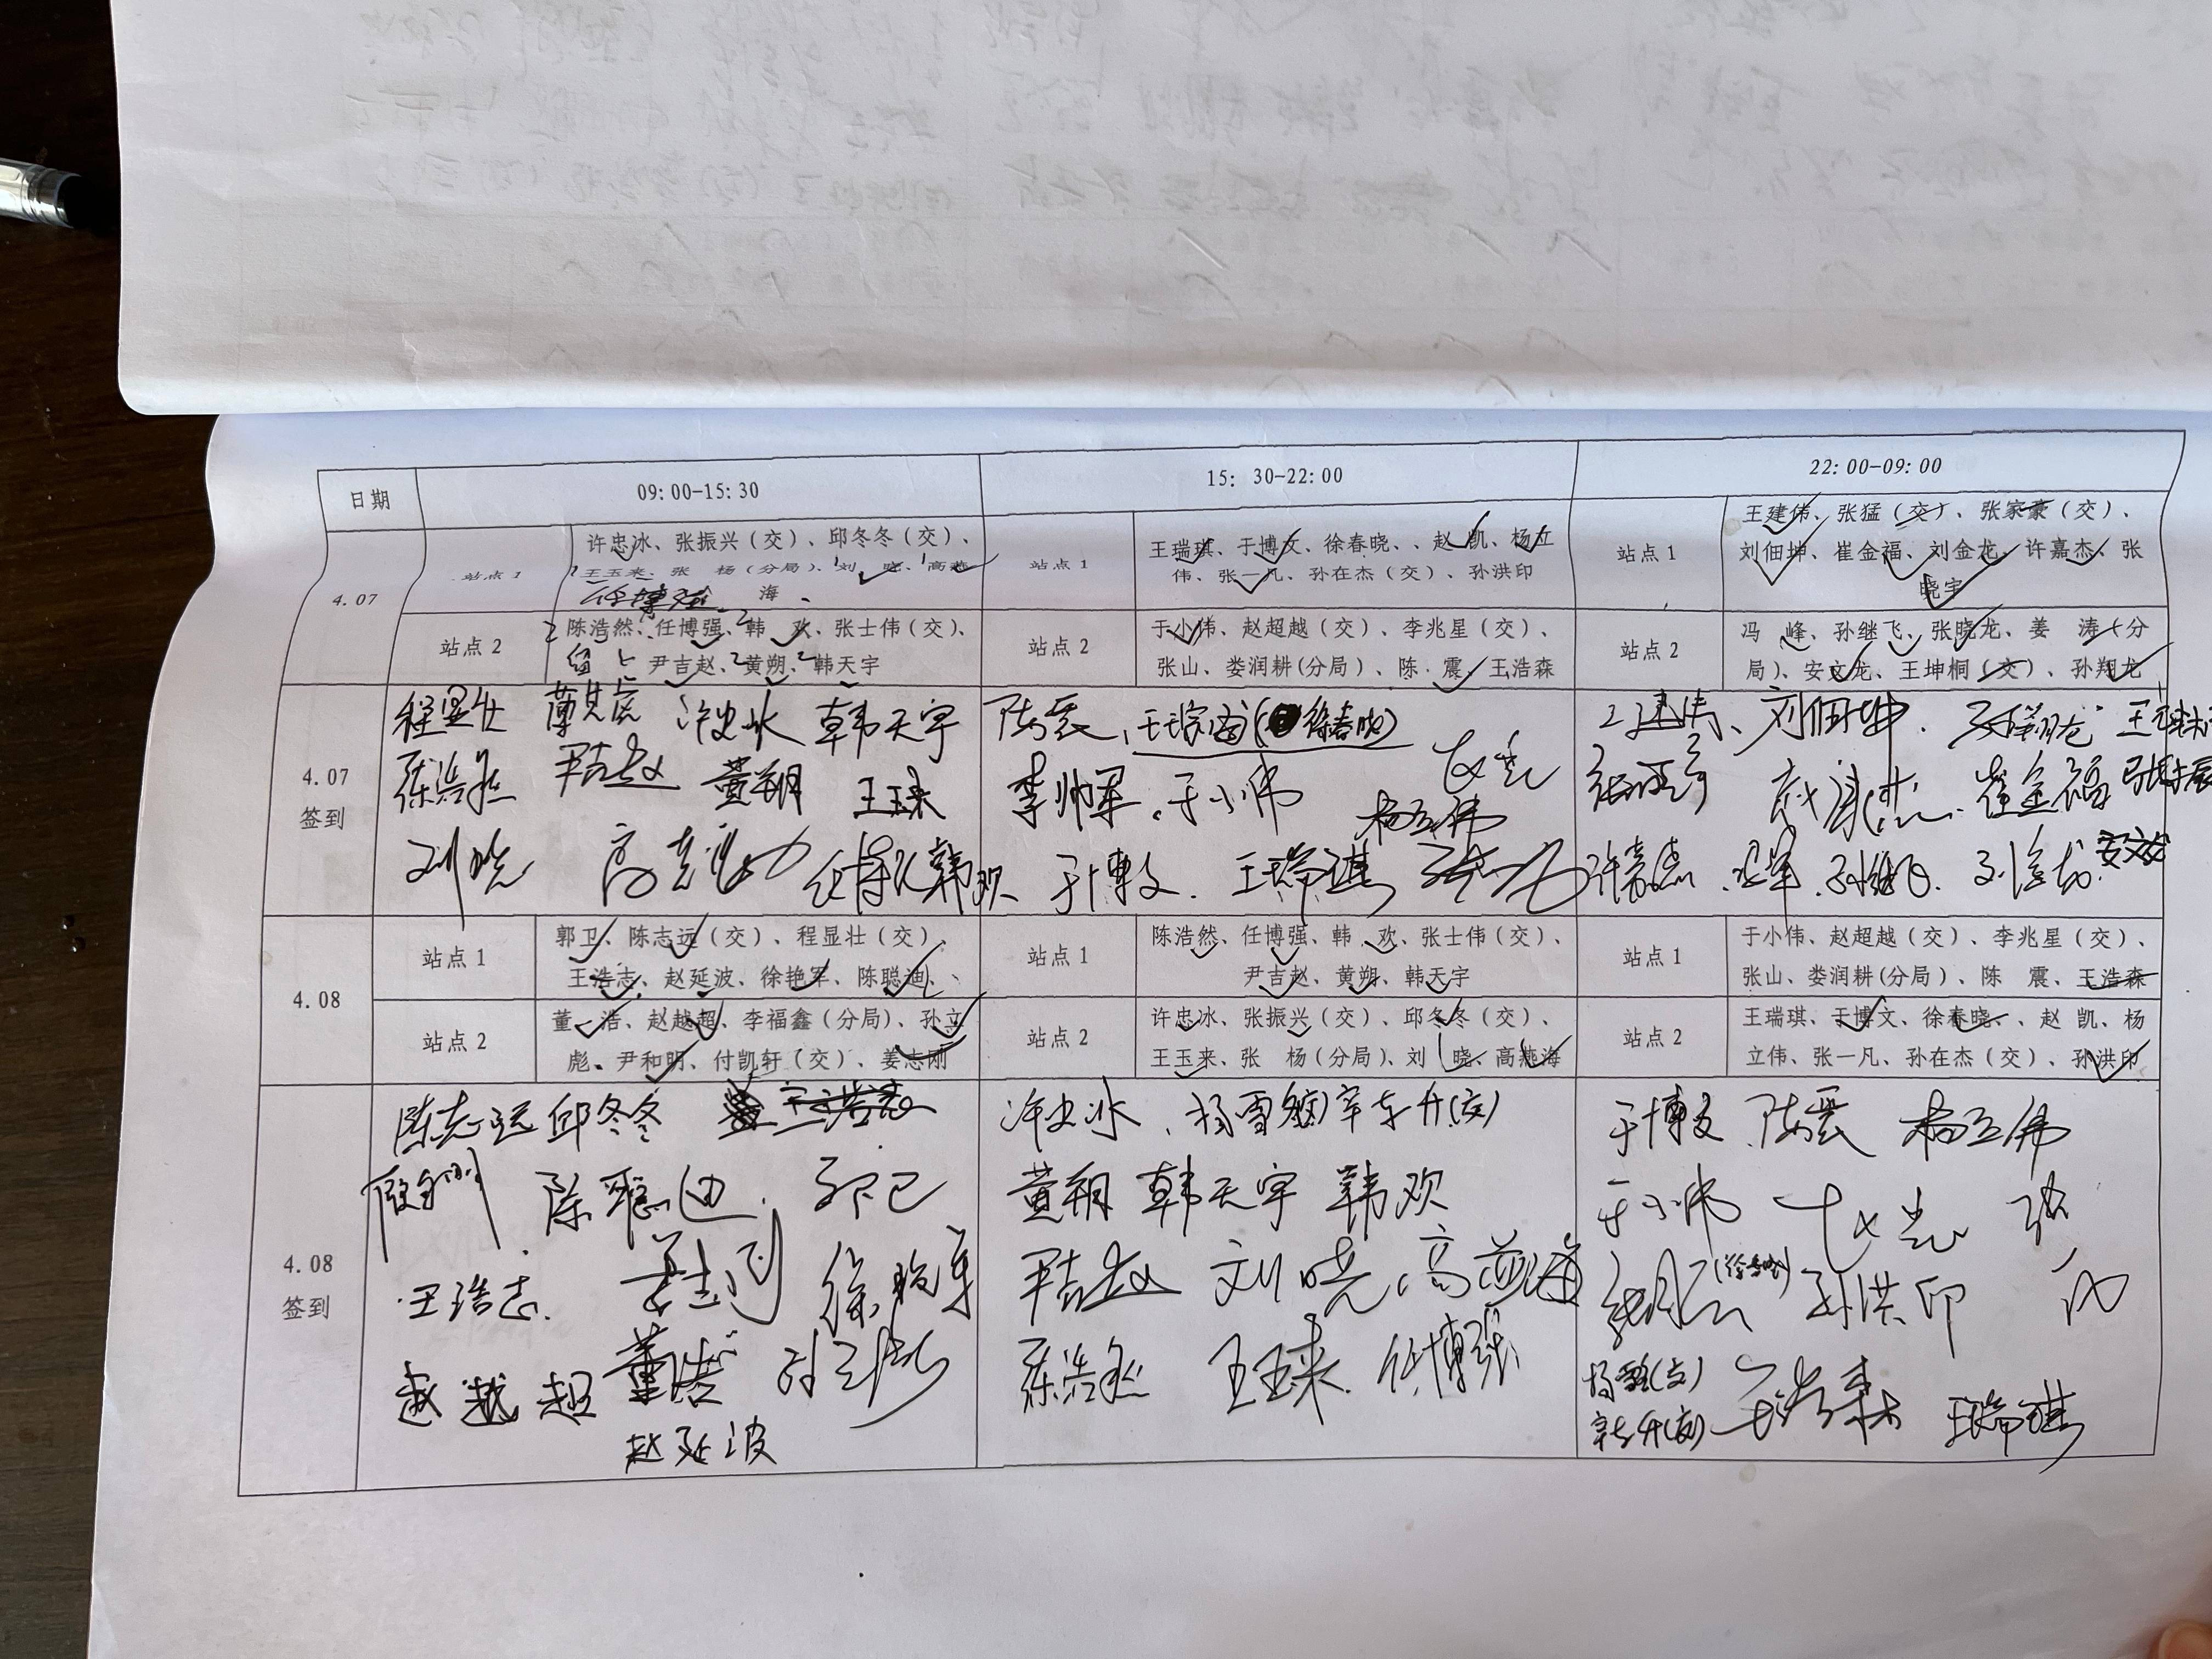 日期 09:00-15:30 15:30-22:00 22:00-09:00
4.07
站点1
许忠冰、张振兴（交）、邱冬冬（交）、
王玉来、张 杨（分局）、刘 晓、高燕
海
站点1
王瑞琪、于博文、徐春晓、、赵 凯、杨立
伟、张一凡、孙在杰（交）、孙洪印
站点1
王建伟、张猛（交）、张家豪（交）、
刘佃坤、崔金福、刘金龙、许嘉杰、张
晓宇
站点2
陈浩然、任博强、韩 欢、张士伟（交）、
尹吉赵、黄朔、韩天宇
站点2
于小伟、赵超越（交）、李兆星（交）、
张山、娄润耕(分局)、陈 震、王浩森
站点2
冯 峰、孙继飞、张晓龙、姜 涛（分
局）、安文龙、王坤桐（交）、孙翔龙
4.07
签到
程显壮 许忠冰 韩天宇
陈浩然 尹吉赵 黄朔 王玉来
刘晓 高燕海 任博强 韩欢
陈震、(徐春晓)
李帅军、于小伟 杨立伟
于博文、王瑞琪 张一凡
王建伟、刘佃坤、孙翔龙
崔金福
许嘉杰、孙继飞、刘金龙、安文龙
4.08
站点1
郭卫、陈志远（交）、程显壮（交）、
王浩志、赵延波、徐艳军、陈聪迪、
站点1
陈浩然、任博强、韩 欢、张士伟（交）、
尹吉赵、黄朔、韩天宇
站点1
于小伟、赵超越（交）、李兆星（交）、
张山、娄润耕(分局)、陈 震、王浩森
站点2
董 浩、赵越超、李福鑫（分局）、孙立
彪、尹和明、付凯轩（交）、姜志刚
站点2
许忠冰、张振兴（交）、邱冬冬（交）、
王玉来、张 杨（分局）、刘 晓、高燕海
站点2
王瑞琪、于博文、徐春晓、、赵 凯、杨
立伟、张一凡、孙在杰（交）、孙洪印
4.08
签到
陈志远 邱冬冬
陈聪迪、郭卫
王浩志、姜志刚 徐艳军
赵越超 董浩 孙立彪
赵延波
许忠冰、杨雪(交)
黄朔 韩天宇 韩欢
尹吉赵 刘晓、高燕海
陈浩然 王玉来、任博强
于博文、陈震 杨立伟
于小伟 赵凯 张一凡
(徐春晓) 孙洪印
杨雪(交) 王浩森 王瑞琪